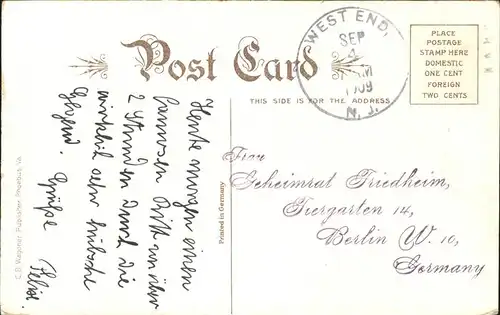 Post Card
THIS SIDE IS FOR THE ADDRESS
WEST END,
SEP
1909
N. J.
PLACE
POSTAGE
STAMP HERE
DOMESTIC
ONE CENT
FOREIGN
TWO CENTS
Heute morgen einen
famosen Ritt von über
2 Stunden durch die
wirklich sehr hübsche
Gegend. Grüße Felix.
Printed in Germany
Frau
Geheimrat Friedheim,
Tiergarten 14,
Berlin W. 10,
Germany